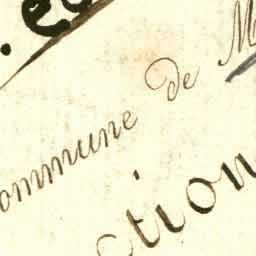 ommune de M
ction